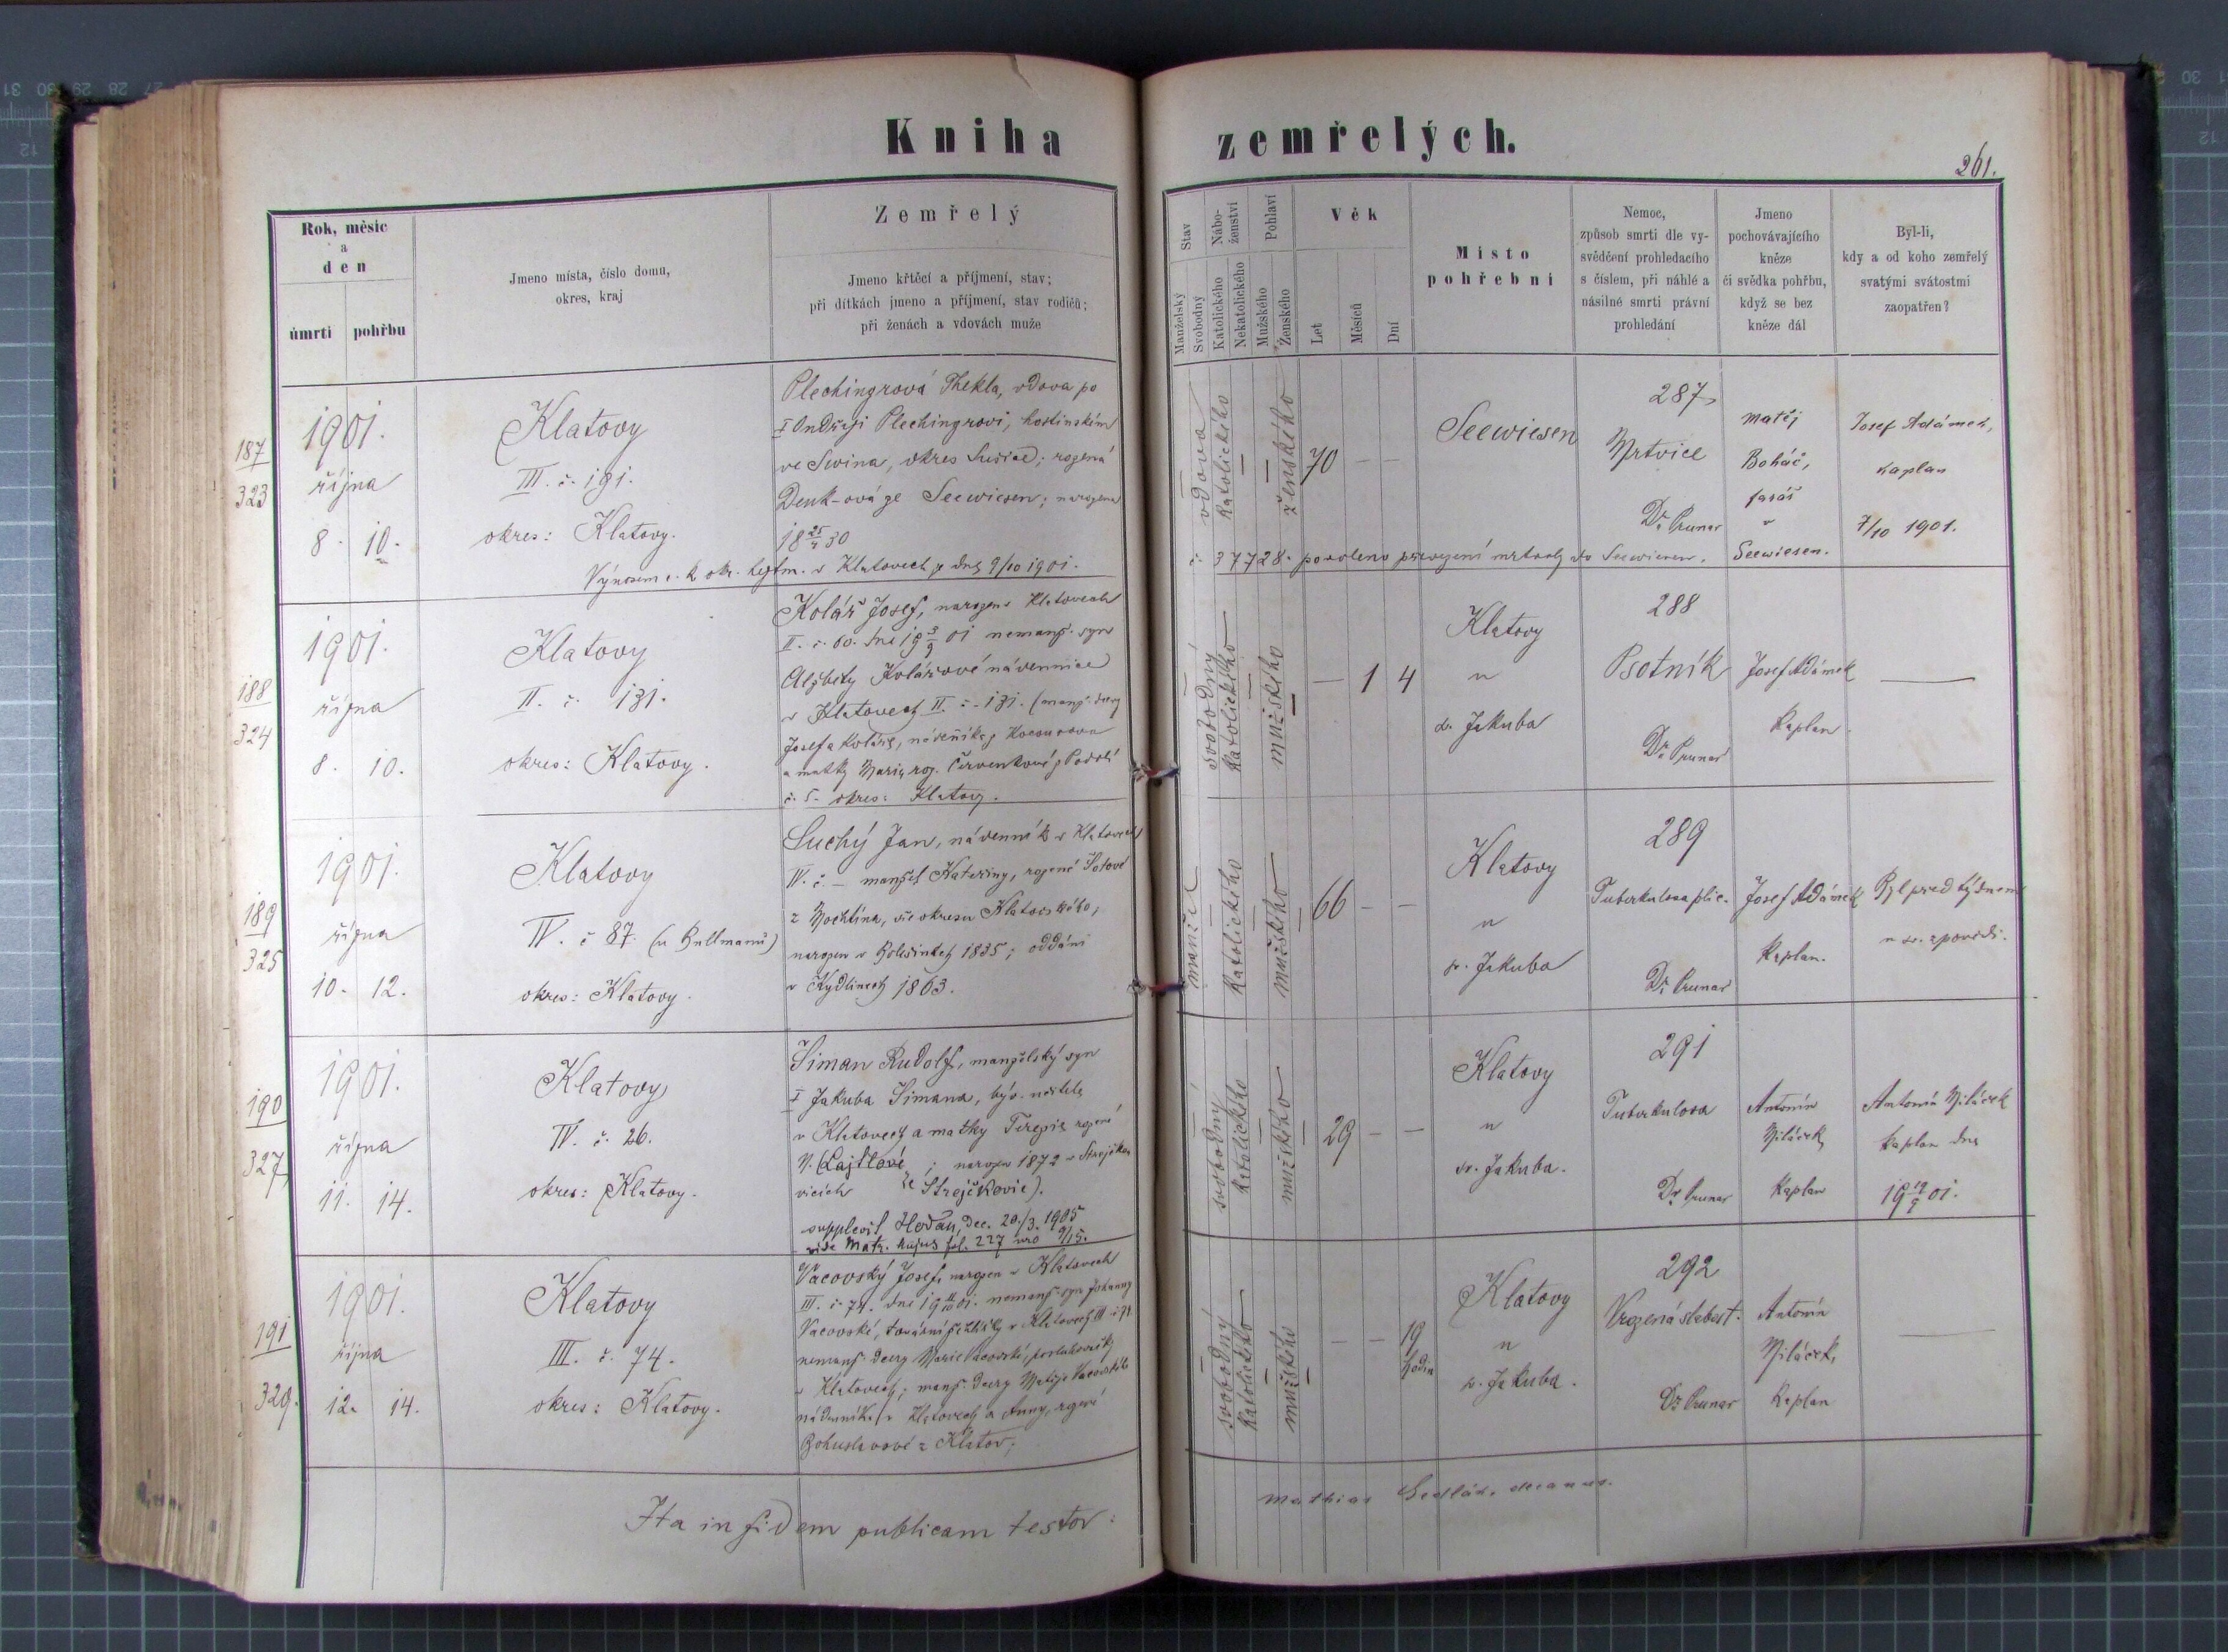 Kniha zemřelých.
261.
Rok, měsíc
a
den
úmrtí
pohřbu
Jmeno místa, číslo domu,
okres, kraj
Zemřelý
Jmeno křtěcí a příjmení, stav;
při dítkách jmeno a příjmení, stav rodičů;
při ženách a vdovách muže
Stav
Manželský
Svobodný
Nábo-
ženství
Katolického
Nekatolického
Pohlaví
Mužského
Ženského
Věk
Let
Měsíců
Dní
Místo
pohřební
Nemoc,
způsob smrti dle vy-
svědčení prohledacího
s číslem, při náhlé a
násilné smrti právní
prohledání
Jmeno
pochovávajícího
kněze
či svědka pohřbu,
když se bez
kněze dál
Byl-li,
kdy a od koho zemřelý
svatými svátostmi
zaopatřen?
187
323
1901.
října
8. 10.
Klatovy
III. č. 191.
okres: Klatovy.
Plechingrová Thekla, vdova po
† Ondřeji Plechingrovi, hostinském
ve Swina, okres Sušice; rozená
Denk-ová ze Seewiesen; narozena
18 25/4 30
Výnosem c. k. okr. hejtm. v Klatovech z dne 9/10 1901.
č. 37728. povoleno převezení mrtvoly do Seewiesen.
vdova
Katolického
ženského
70 — —
Seewiesen
287
Mrtvice
Dr. Prunar
Matěj
Boháč,
farář
v
Seewiesen.
Josef Adámek,
kaplan
7/10 1901.
188
324
1901.
října
8. 10.
Klatovy
II. č. 131.
okres: Klatovy.
Kolář Josef, narozen v Klatovech
II. č. 60. dne 19 3/9 01 nemanž. syn
Alžběty Kolářové nádennice
v Klatovech II. č. 131. (manž. dcery
Josefa Koláře, nádeníka z Kocourova
a matky Marie roz. Červenkové z Podolí
č. 5. okres: Klatovy.
svobodný
Katolického
mužského
— 1 4
Klatovy
u
sv. Jakuba
288
Psotník
Dr. Prunar
Josef Adámek
Kaplan.
—
189
325
1901.
října
10. 12.
Klatovy
IV. č 87. (u Bullmanů)
okres: Klatovy.
Suchý Jan, nádenník v Klatovech
IV. č. — manžel Kateřiny, rozené Šotové
z Mochtína, vše okresu Klatovského;
narozen v Bolešinkách 1835; oddáni
v Kydlinech 1863.
manžel
Katolického
mužského
66 — —
Klatovy
u
sv. Jakuba
289
Tuberkulosa plic.
Dr. Prunar
Josef Adámek
Kaplan.
Byl před týdnem
u sv. zpovědi.
190
327
1901.
října
11. 14.
Klatovy
IV. č. 26.
okres: Klatovy.
Šiman Rudolf, manželský syn
† Jakuba Šimana, býv. učitele
v Klatovech a matky Terezie rozené
N. (Lajtlové; narozen 1872 v Strejčko
vicích ze Strejčkovic).
supplevit Hodáň, Dec. 20./3. 1905
vide Matr. hujus fol. 227 nro 9/15.
svobodný
Katolického
mužského
29 — —
Klatovy
u
sv. Jakuba.
291
Tuberkulosa
Dr. Prunar
Antonín
Miláček
Kaplan
Antonín Miláček
kaplan dne
19 19/9 01.
191
329.
1901.
října
12. 14.
Klatovy
III. č. 74.
okres: Klatovy.
Vacovský Josef, narozen v Klatovech
III. č. 74. dne 19 11/10 01. nemanž. syn Johanny
Vacovské, tovární šičky v Klatovech III č. 74
nemanž. dcery Marie Vacovské, posluhovačky
v Klatovech; manž. dcery Matěje Vacovského
nádenníka v Klatovech a Anny, rozené
Bohuslavové z Klatov;
svobodný
Katolického
mužského
— — 19
hodin
Klatovy
u
sv. Jakuba.
292
Vrozená slabost.
Dr. Prunar
Antonín
Miláček,
Kaplan
—
Ita in fidem publicam testor: Mathias Sedlák, decanus.